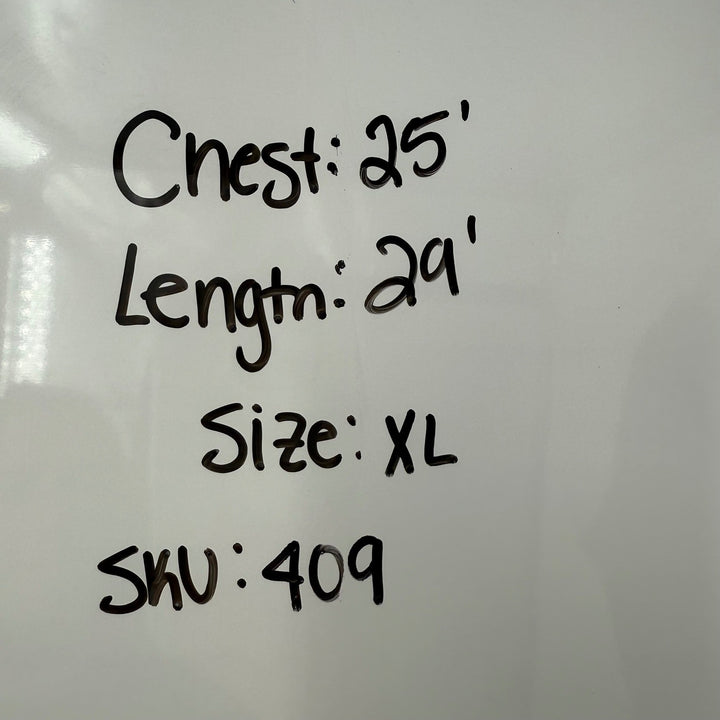 Chest: 25'
Length: 29'
Size: XL
SKU: 409